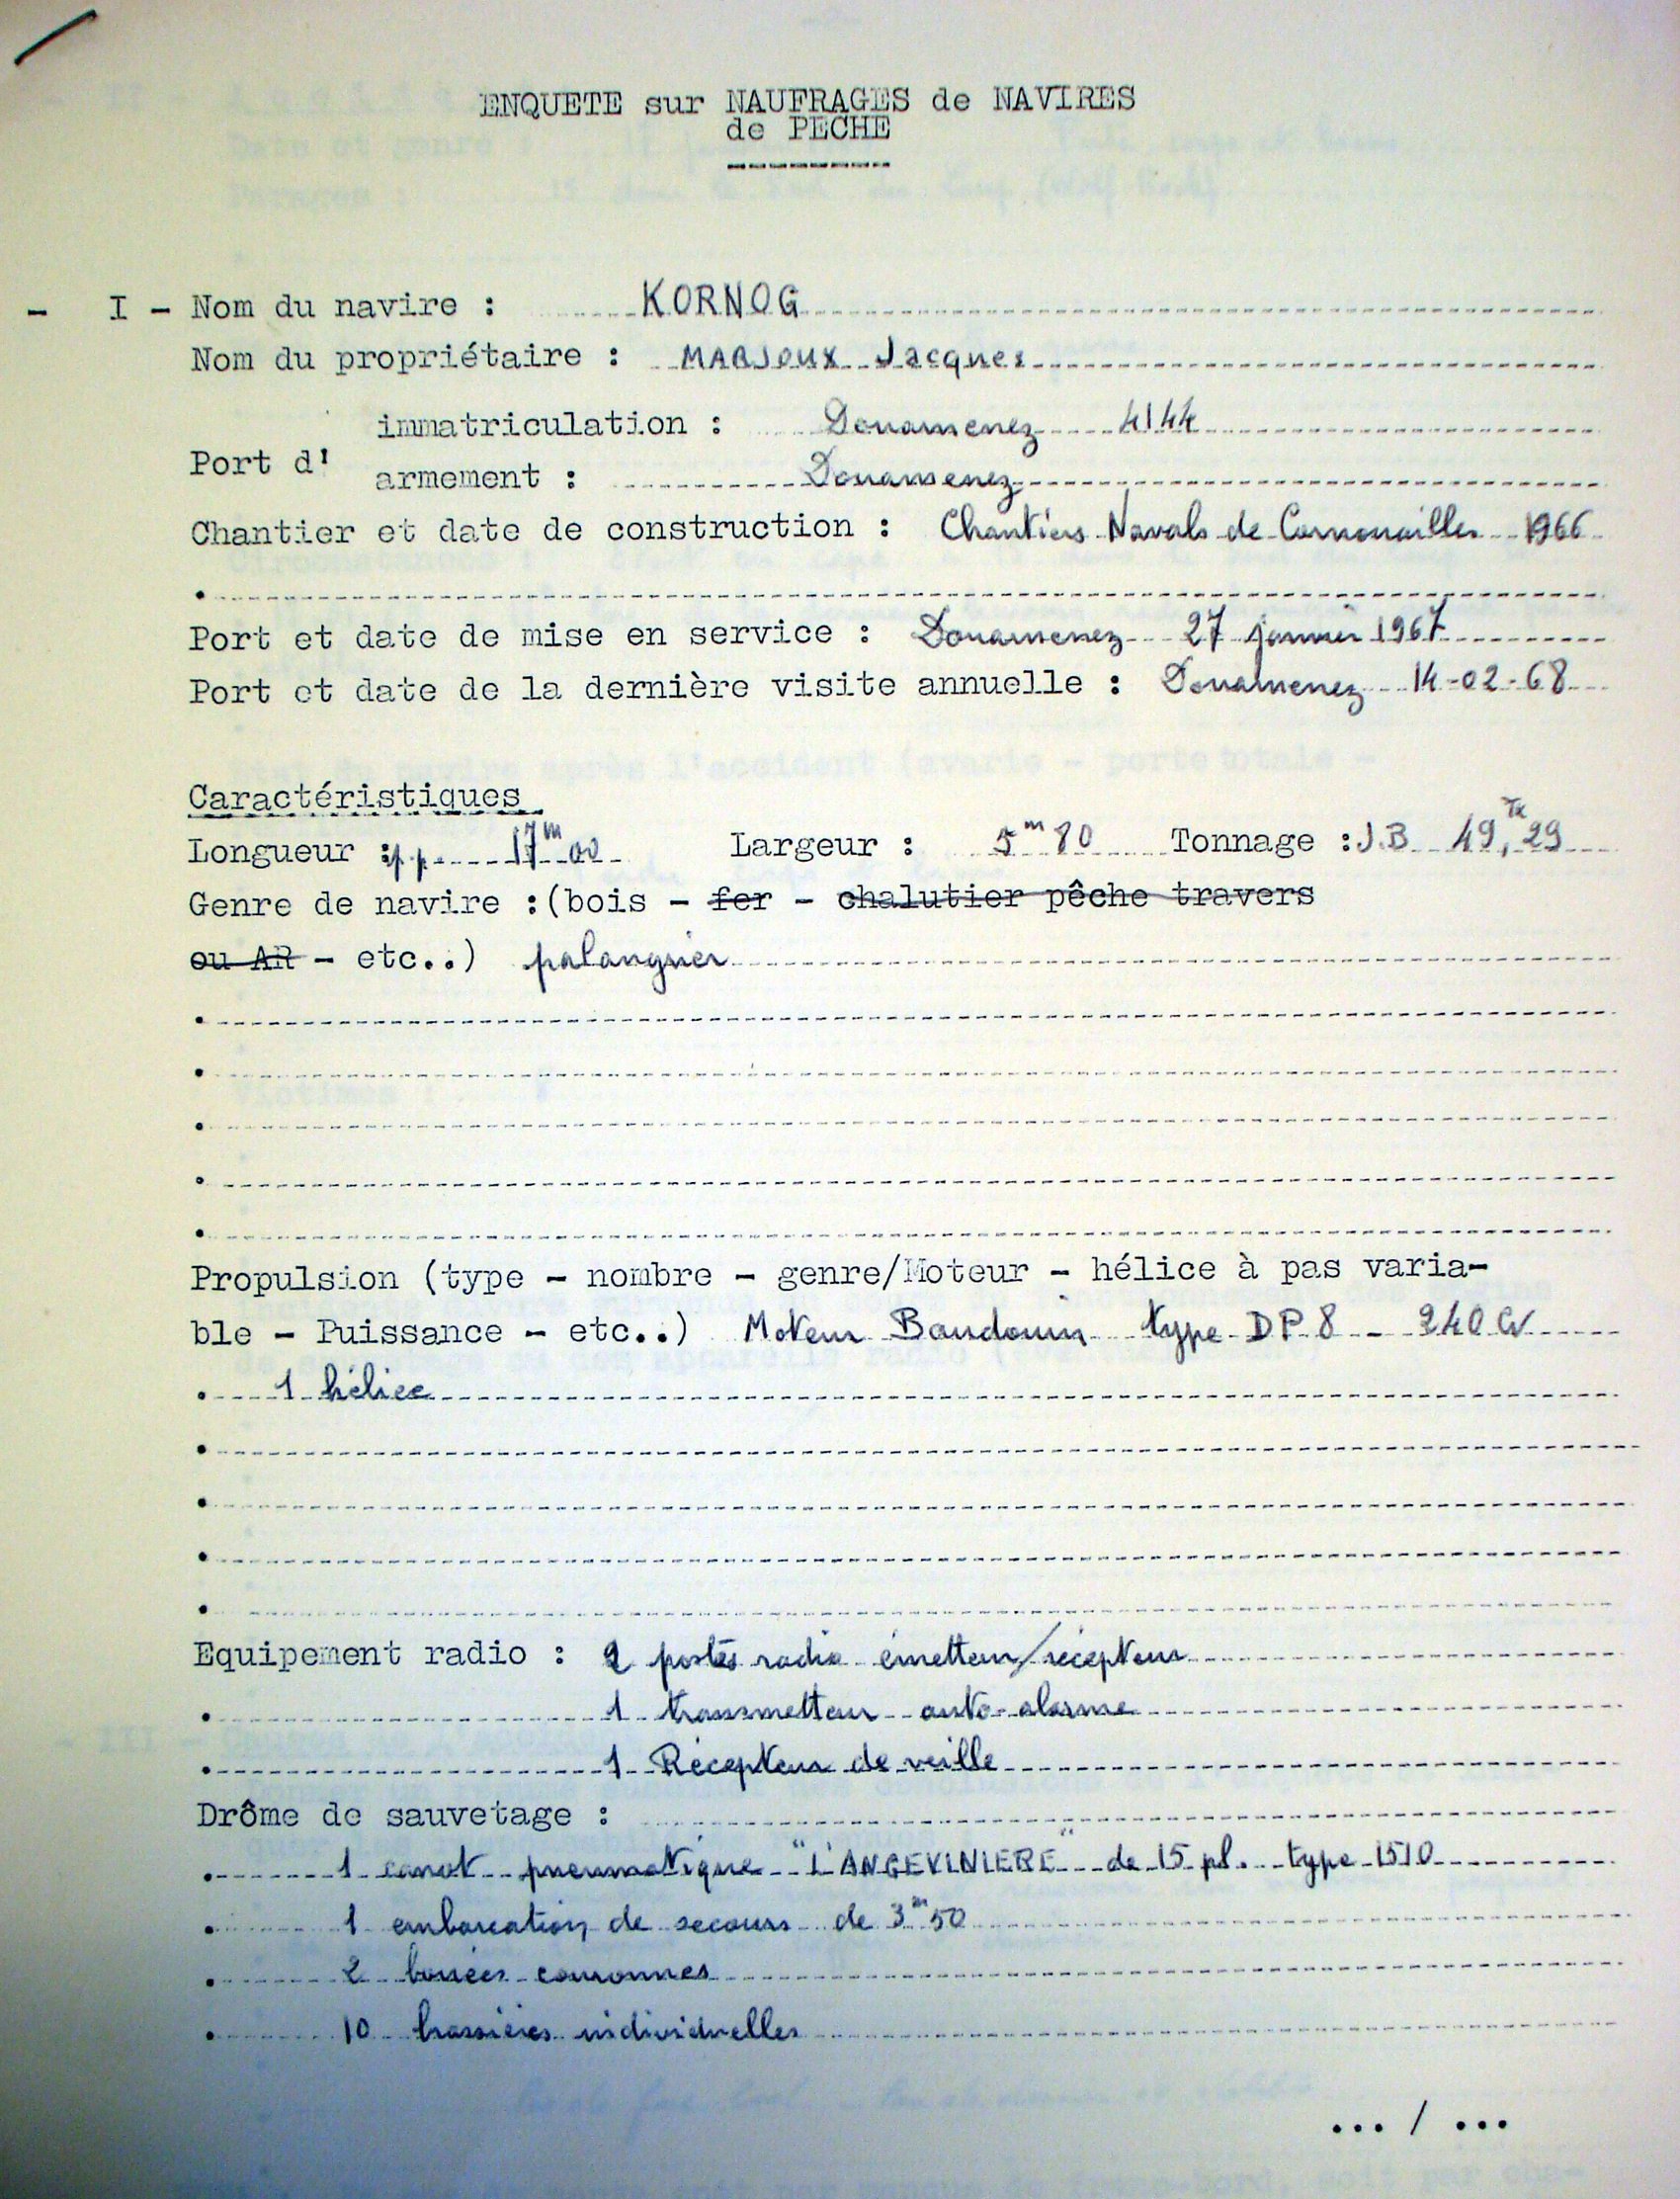 ENQUETE sur NAUFRAGES de NAVIRES
de PECHE
- I - Nom du navire : KORNOG
Nom du propriétaire : MARJOUX Jacques
immatriculation : Douarnenez 4144
Port d'
armement : Douarnenez
Chantier et date de construction : Chantiers Navals de Cornouailles 1966
Port et date de mise en service : Douarnenez 27 janvier 1967
Port et date de la dernière visite annuelle : Douarnenez 14-02-68
Caractéristiques
Longueur : pp 17m00 Largeur : 5m80 Tonnage : J.B 49,Tx29
Genre de navire :(bois - fer - chalutier pêche travers
ou AR - etc..) palangrier
Propulsion (type - nombre - genre/Moteur - hélice à pas varia-
ble - Puissance - etc..) Moteur Baudouin type DP8 - 240 CV
1 hélice
Equipement radio : 2 postes radio émetteur/récepteur
1 transmetteur auto-alarme
1 Récepteur de veille
Drôme de sauvetage :
1 canot pneumatique "L'ANGEVINIERE" de 15 pl. type 1510
1 embarcation de secours de 3m50
2 bouées couronnes
10 brassières individuelles
... / ...